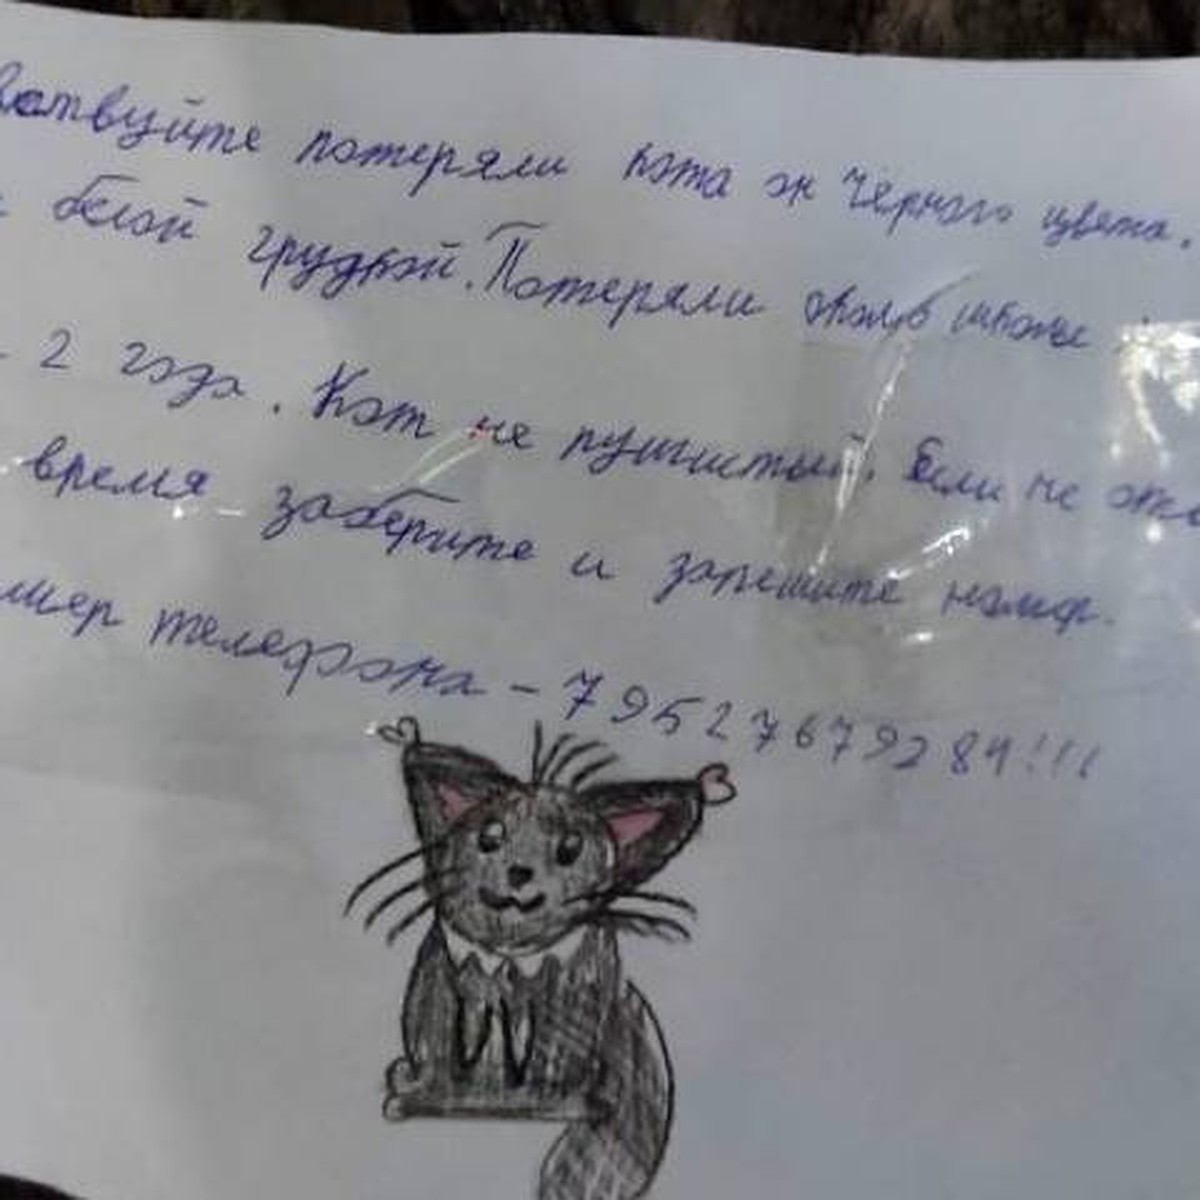 вствуйте потеряли кота он чёрного цвета.
с белой грудкой. Потеряли около школы
- 2 года. Кот не пушистый. Если не
время заберите и
мер телефона - 79527679284!!!